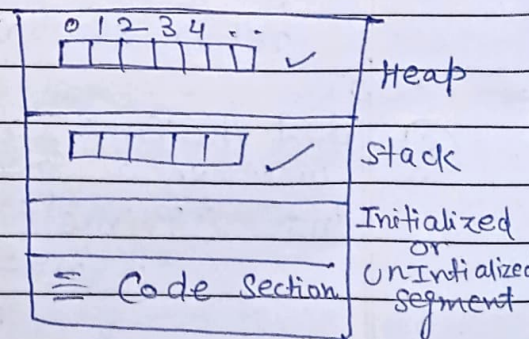 0 1 2 3 4 . .
Heap
Stack
Initialized
or
UnIntialized
segment
Code Section